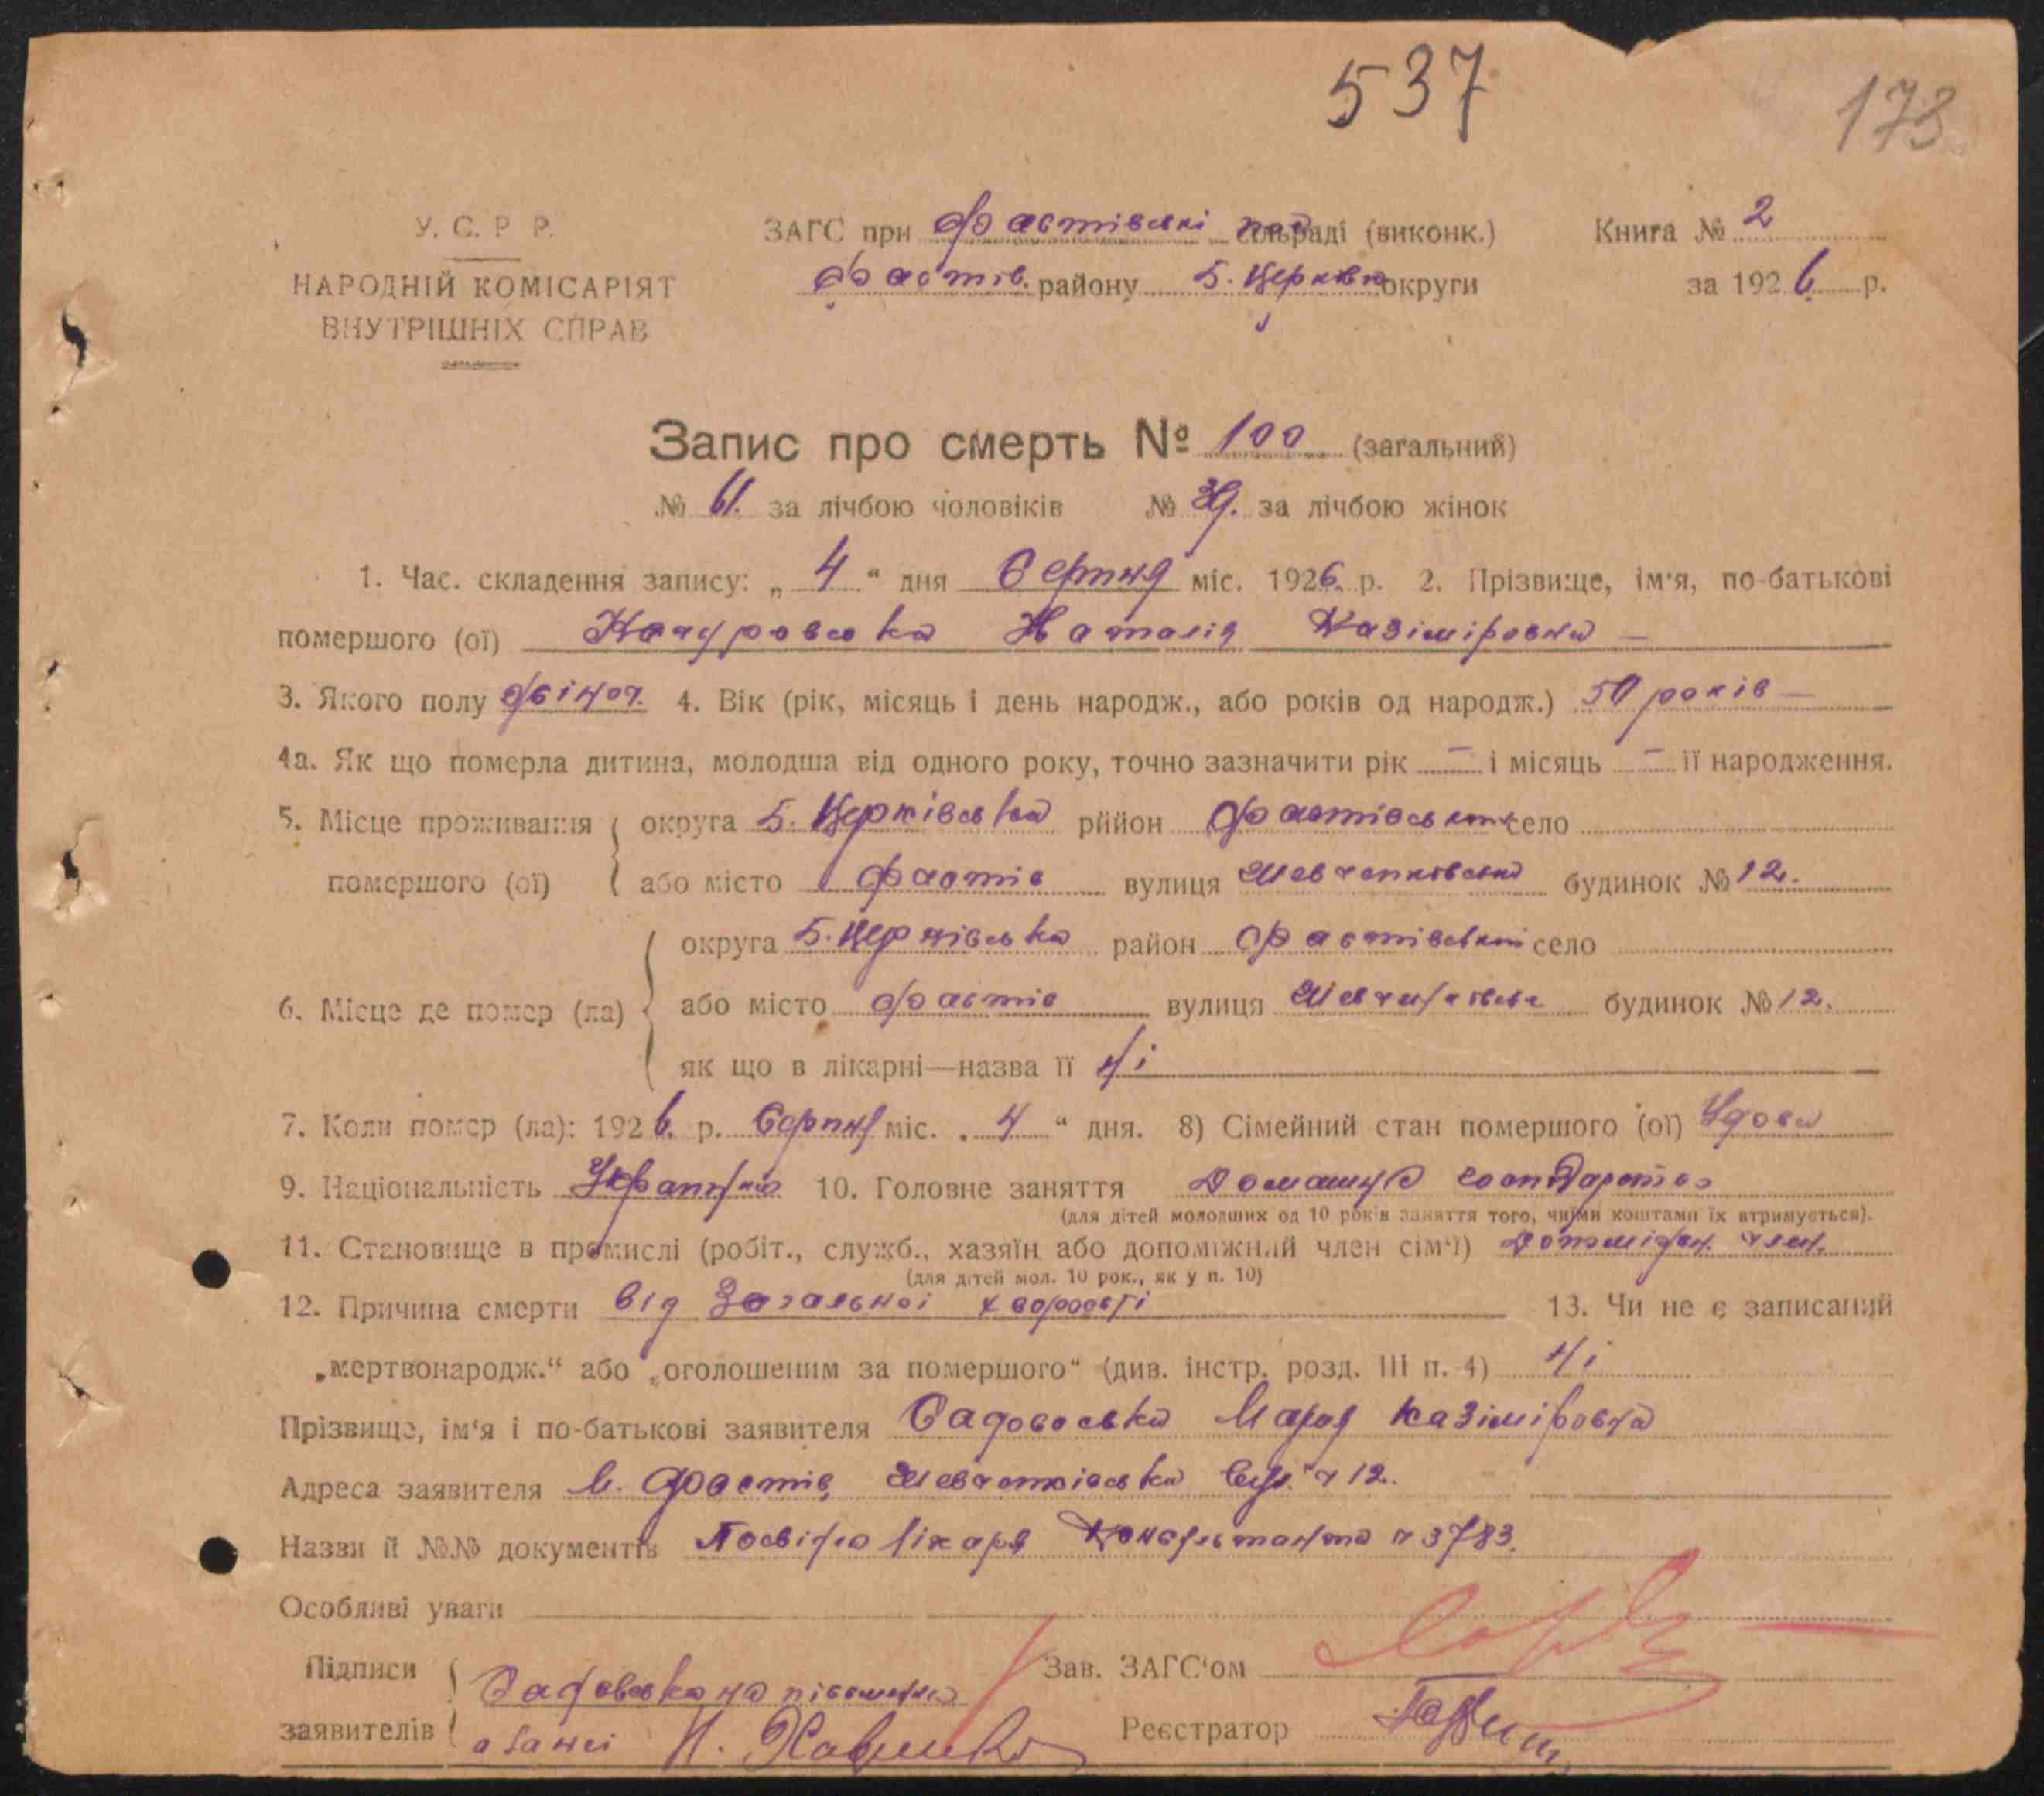 537
173
У. С. Р. Р.
НАРОДНІЙ КОМІСАРІЯТ
ВНУТРІШНІХ СПРАВ
ЗАГС при Фастівські сільраді (виконк.)
Фастів. району Б. Церків округи
Книга № 2
за 1926 р.
Запис про смерть № 100 (загальний)
№ 61. за лічбою чоловіків № 39. за лічбою жінок
1. Час. складення запису: „ 4 “ дня Серпня міс. 1926. р. 2. Прізвище, ім'я, по-батькові
помершого (ої) Наталія Казіміровна —
3. Якого полу жіноч. 4. Вік (рік, місяць і день народж., або років од народж.) 50 років —
4а. Як що померла дитина, молодша від одного року, точно зазначити рік — і місяць — її народження.
5. Місце проживання округа Б. Церківська рйион Фастівський село
помершого (ої) або місто Фастів вулиця Шевченківська будинок № 12.
округа Б. Церківська район Фастівський село
6. Місце де помер (ла) або місто Фастів вулиця Шевченківська будинок № 12.
як що в лікарні—назва її ні
7. Коли помер (ла): 1926. р. Серпня міс. „ 4 “ дня. 8) Сімейний стан помершого (ої) Удова
9. Національність Українка 10. Головне заняття Домашнє господарство
(для дітей молодших од 10 років заняття того, чиїми коштами їх втримується).
11. Становище в промислі (робіт., служб., хазяїн або допоміжний член сім'ї) Допоміжн. член.
(для дітей мол. 10 рок., як у п. 10)
12. Причина смерти від Загальної хворости 13. Чи не є записаний
„мертвонародж.“ або „оголошеним за помершого“ (див. інстр. розд. III п. 4) ні
Прізвище, ім'я і по-батькові заявителя Садовська Марія Казіміровна
Адреса заявителя м. Фастів, Шевченківська вул. ч 12.
Назви й №№ документів Посвідка лікаря Консультанта ч 3783.
Особливі уваги
Підписи Садовська
заявителів
Зав. ЗАГС'ом
Реєстратор